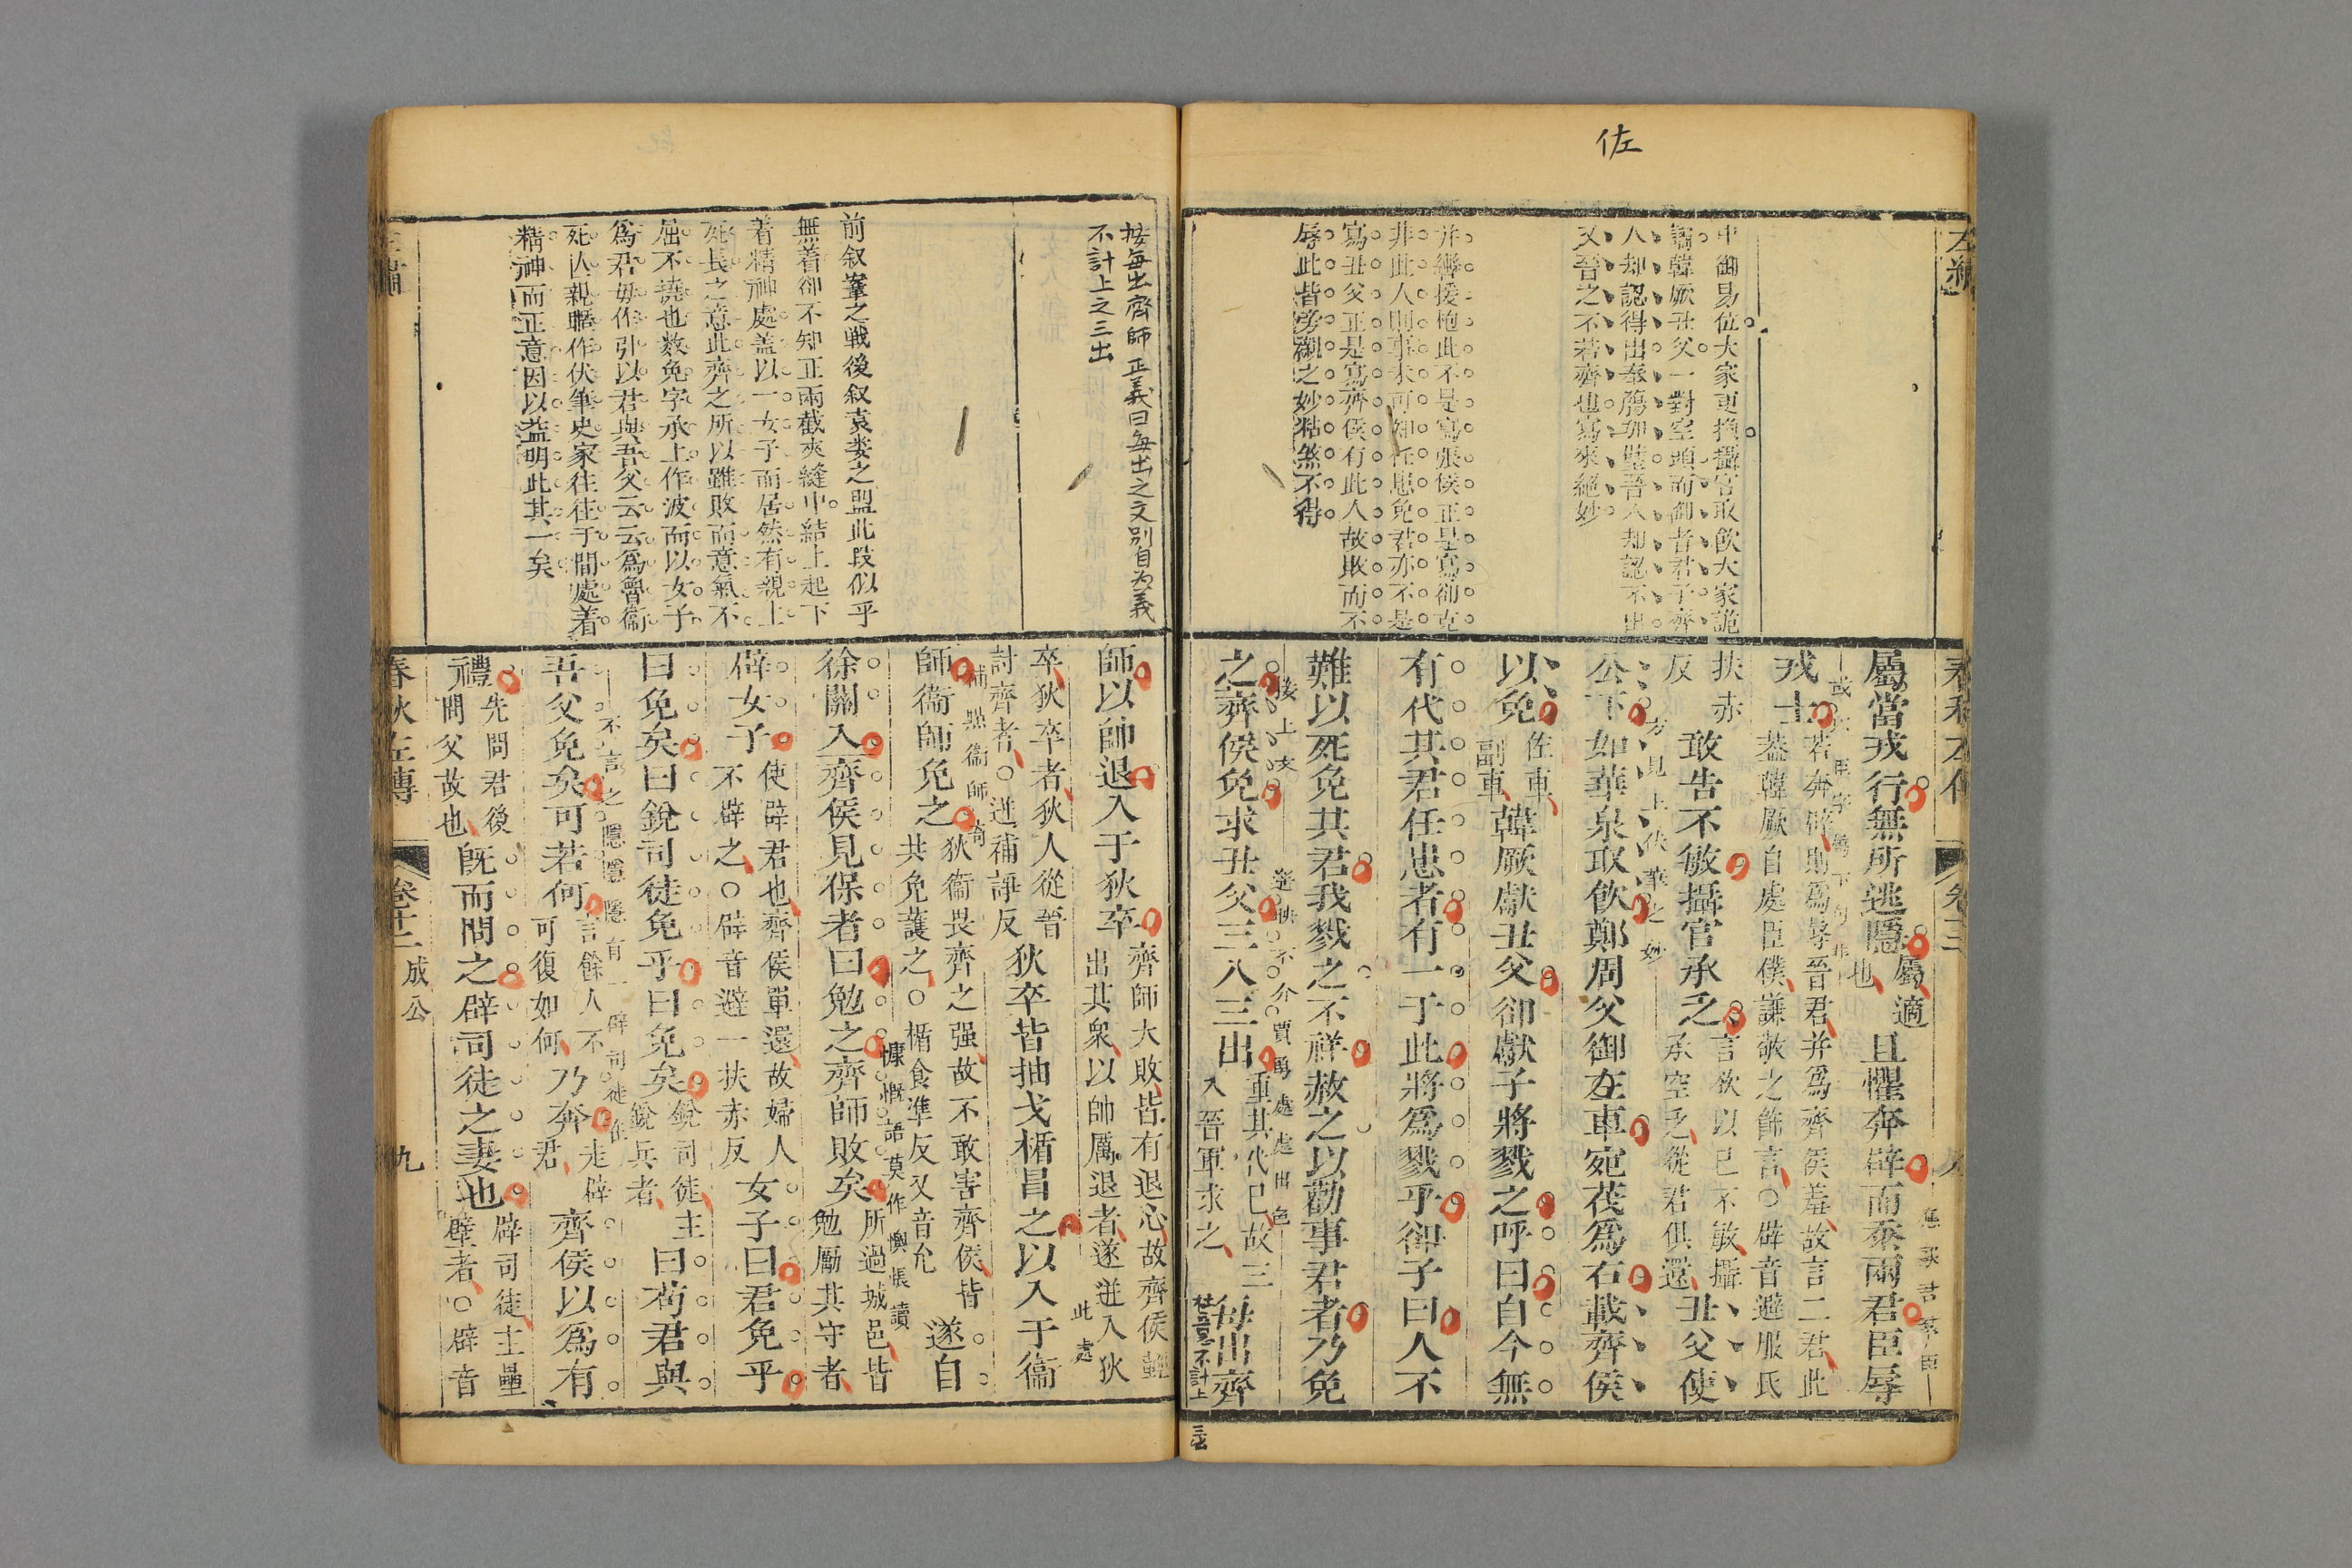 佐
中御易位大家更換攝官取飲大家詭
謂韓厥丑父一對空頭而御者君子齊
人却認得出奉觴加璧晉人却認不出
又晉之不若齊也寫來絕妙
并轡援枹此不是寫張侯正是寫郤克
非此人則事未可知任患免君亦不是
寫丑父正是寫齊侯有此人故敗而不
辱此皆旁襯之妙粘煞不得
屬當戎行無所逃隱
屬適
也
且懼奔辟而忝兩君臣辱
戎士
若奔辟則爲辱晉君并爲齊侯羞故言二君此
蓋韓厥自處臣僕謙敬之飾言○辟音避服氏
扶赤
反
敢告不敏攝官承乏
言欲以己不敏攝
承空乏從君俱還
丑父使
公下如華泉取飲鄭周父御左車宛茷爲右載齊侯
方見上伏華之妙
以免
佐車
副車
韓厥獻丑父郤獻子將戮之呼曰自今無
有代其君任患者有一于此將爲戮乎郤子曰人不
難以死免其君我戮之不祥赦之以勸事君者乃免
之齊侯免求丑父三入三出
重其代已故三
入晉軍求之
每出齊
按每出齊師正義曰每出之文別自为義
不計上之三出
前叙鞌之戰後叙袁婁之盟此段似乎
無着卻不知正兩截夾縫中結上起下
着精神處蓋以一女子而居然有親上
死長之意此齊之所以雖敗而意氣不
屈不撓也數免字承上作波而以女子
爲君毋作引以君與吾父云云爲魯衞
死亾親暱作伏筆史家往往于間處着
精神而正意因以益明此其一矣
師以師退入于狄卒
齊師大敗皆有退心故齊侯輕
出其衆以帥厲退者遂迸入狄
卒狄卒者狄人從晉
討齊者○迸補諍反
狄卒皆抽戈楯冒之以入于衞
此處
師衞師免之
狄衞畏齊之强故不敢害齊侯皆
共免護之○楯食準反又音允
遂自
徐關入齊侯見保者曰勉之齊師敗矣
所過城邑皆
勉勵其守者
慷慨語莫作懊悵讀
辟女子
使辟君也齊侯單還故婦人
不辟之○辟音避一扶赤反
女子曰君免乎
曰免矣曰銳司徒免乎曰免矣
銳司徒主
銳兵者
曰苟君與
吾父免矣可若何
言餘人不
可復如何
乃奔
走辟
君
齊侯以爲有
不言之隱隱隱有一辟司徒在
禮
先問君後
問父故也
旣而問之辟司徒之妻也
辟司徒主壘
壁者○辟音
春秋左傳
卷十二
成公
九